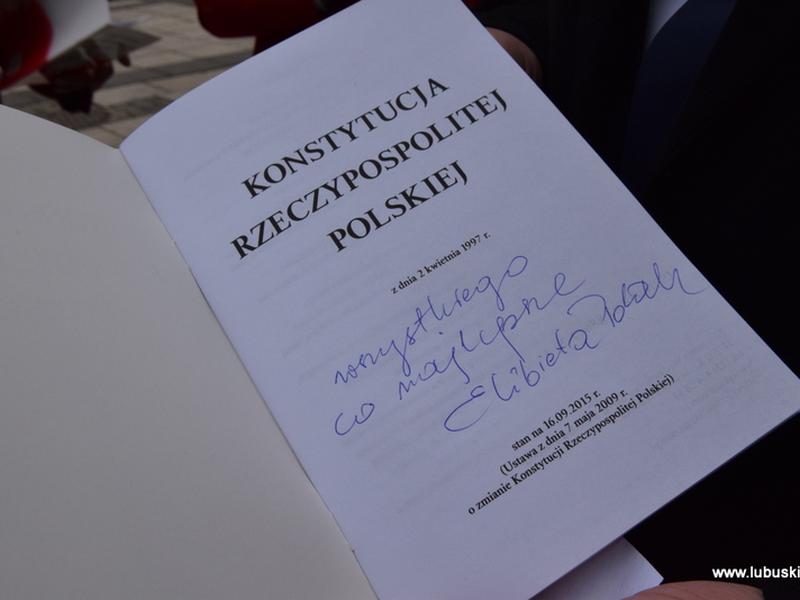 KONSTYTUCJA
RZECZYPOSPOLITEJ
POLSKIEJ
z dnia 2 kwietnia 1997 r.
wszystkiego
co najlepsze
Elżbieta Polak
stan na 16.09.2015 r.
(Ustawa z dnia 7 maja 2009 r.
o zmianie Konstytucji Rzeczypospolitej Polskiej))
www.lubuski